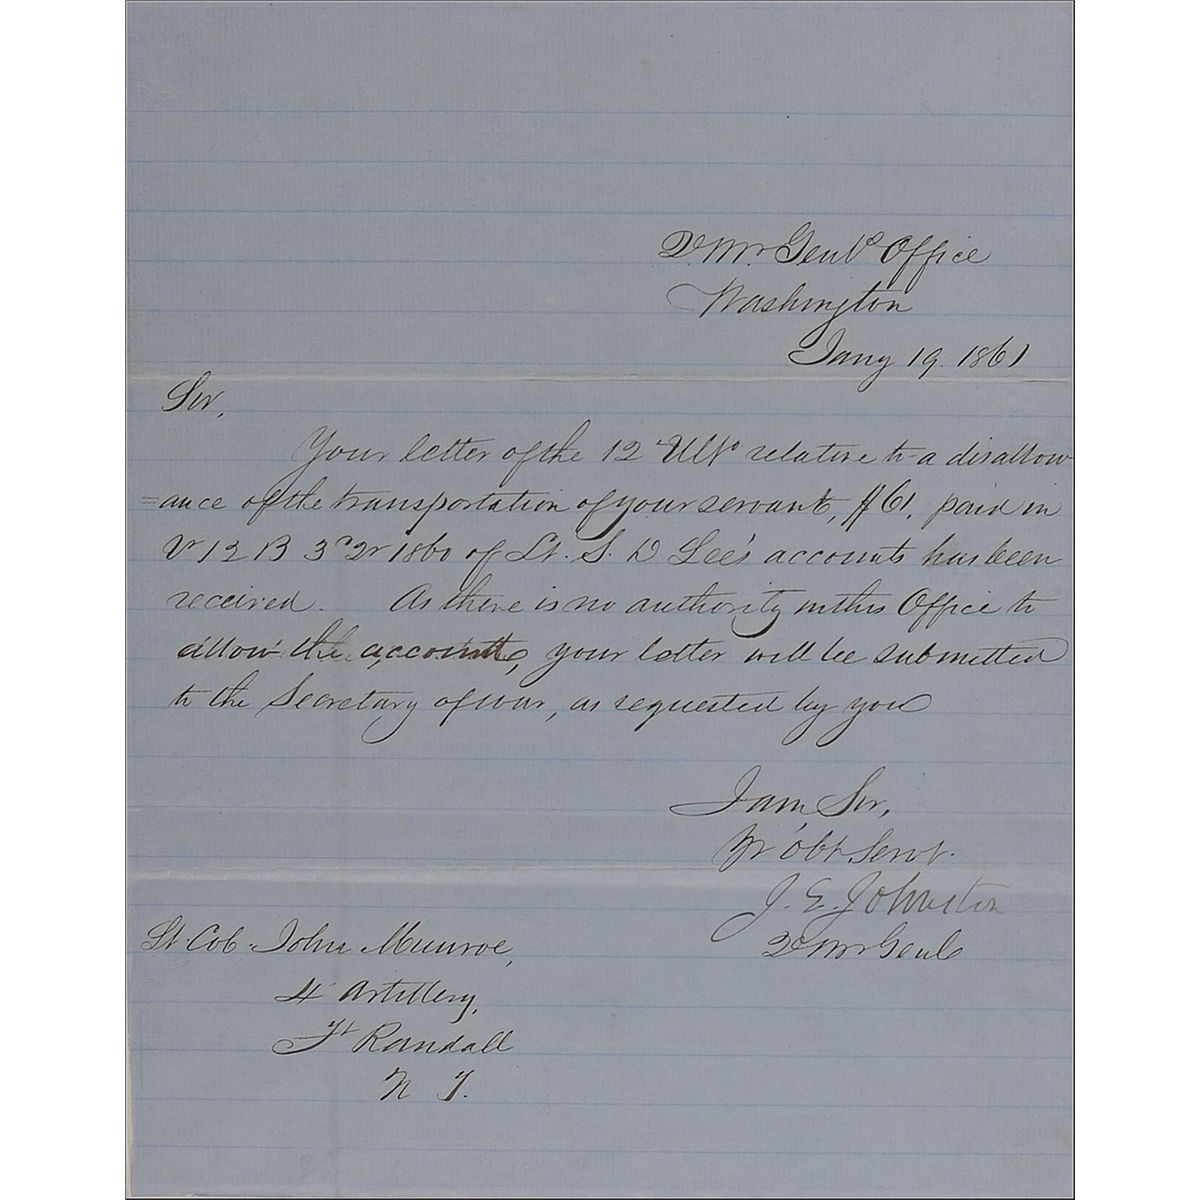 Q M Genl's Office
Washington
Jany 19. 1861
Sir,
Your letter of the 12 Ult° relative to a disallow
=ance of the transportation of your servant, $61, paid in
Vr 12 B 3d Qr 1860 of Lt. S. D Lee's accounts has been
received. As there is no authority in this Office to
allow the account, your letter will be submitted
to the Secretary of war, as requested by you
I am Sir,
Yr obt Servt.
J. E. Johnston
Q M Genl
Lt Col John Munroe,
4 Artillery,
Ft Randall
N T.